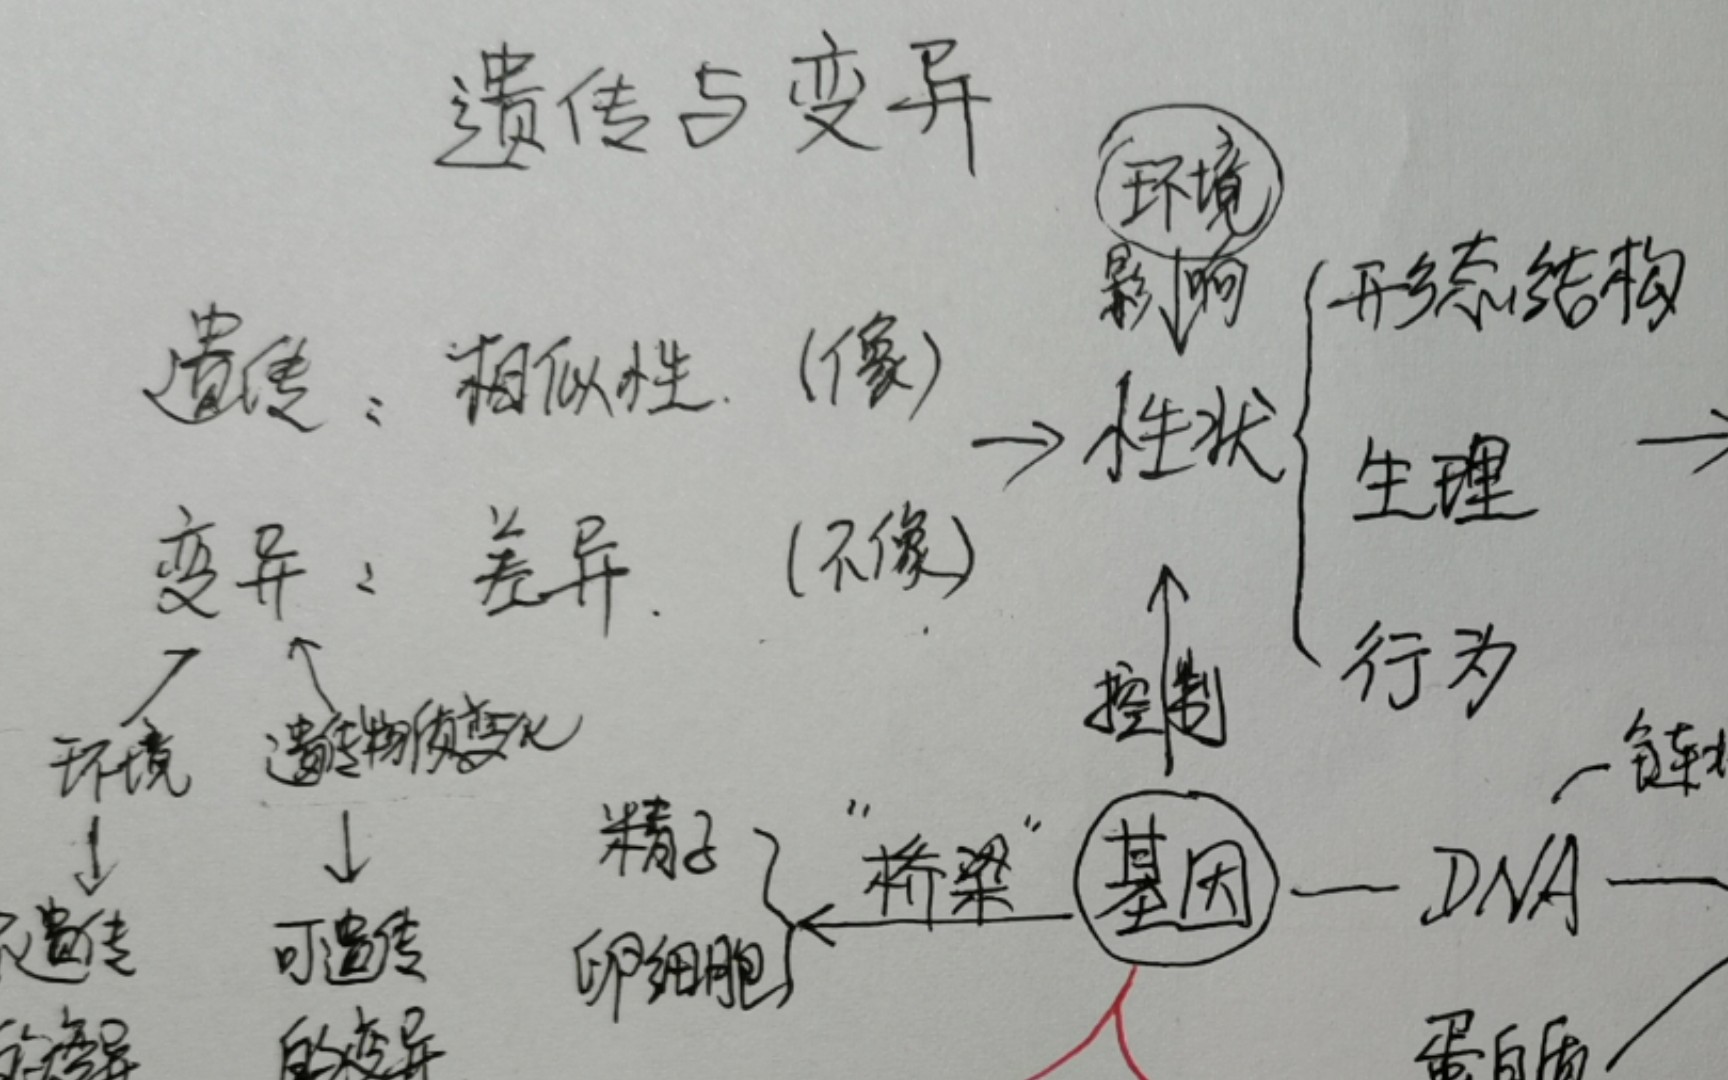 遗传与变异
环境
影响
形态结构
遗传：相似性.（像）
性状
生理
变异：差异.（不像）
行为
控制
环境
遗传物质变化
链状
精子
"桥梁"
基因
DNA
卵细胞
不遗传
可遗传
的变异
的变异
蛋白质